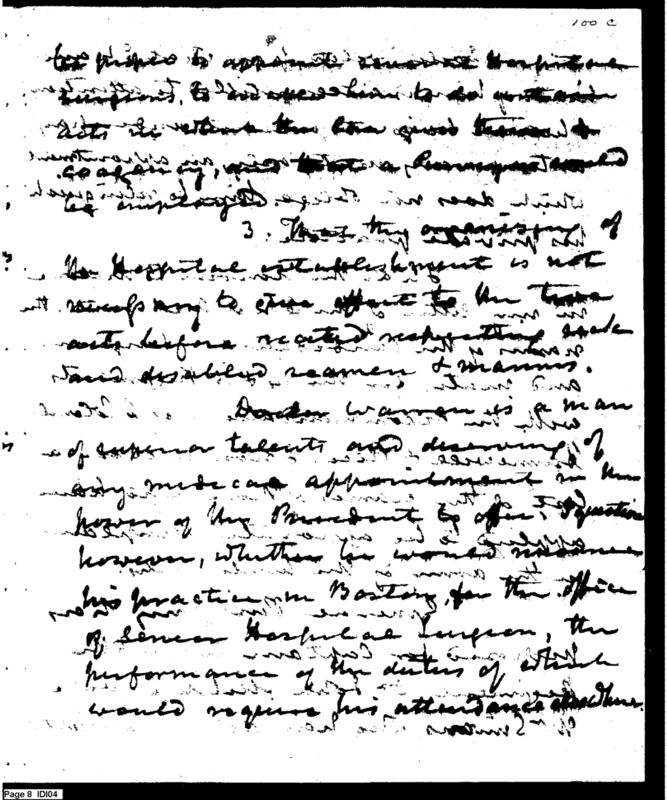 100 C
proper to appoint several Hospital
Surgeons, to authorise him to do certain
acts in which the law gives him
agency, and that a Surveyor should
be employed
3. That the organising of
the Hospital establishment is not
necessary to give effect to the two
acts before recited respecting sick
and disabled seamen & marines.
Doctor Warren is a man
of superior talents and deserving of
any medical appointment in the
power of the President to offer. I question
however, whether he would renounce
his practice in Boston, for the office
of Senior Hospital Surgeon, the
performance of the duties of which
would require his attendance elsewhere.
Page 8 IDI04